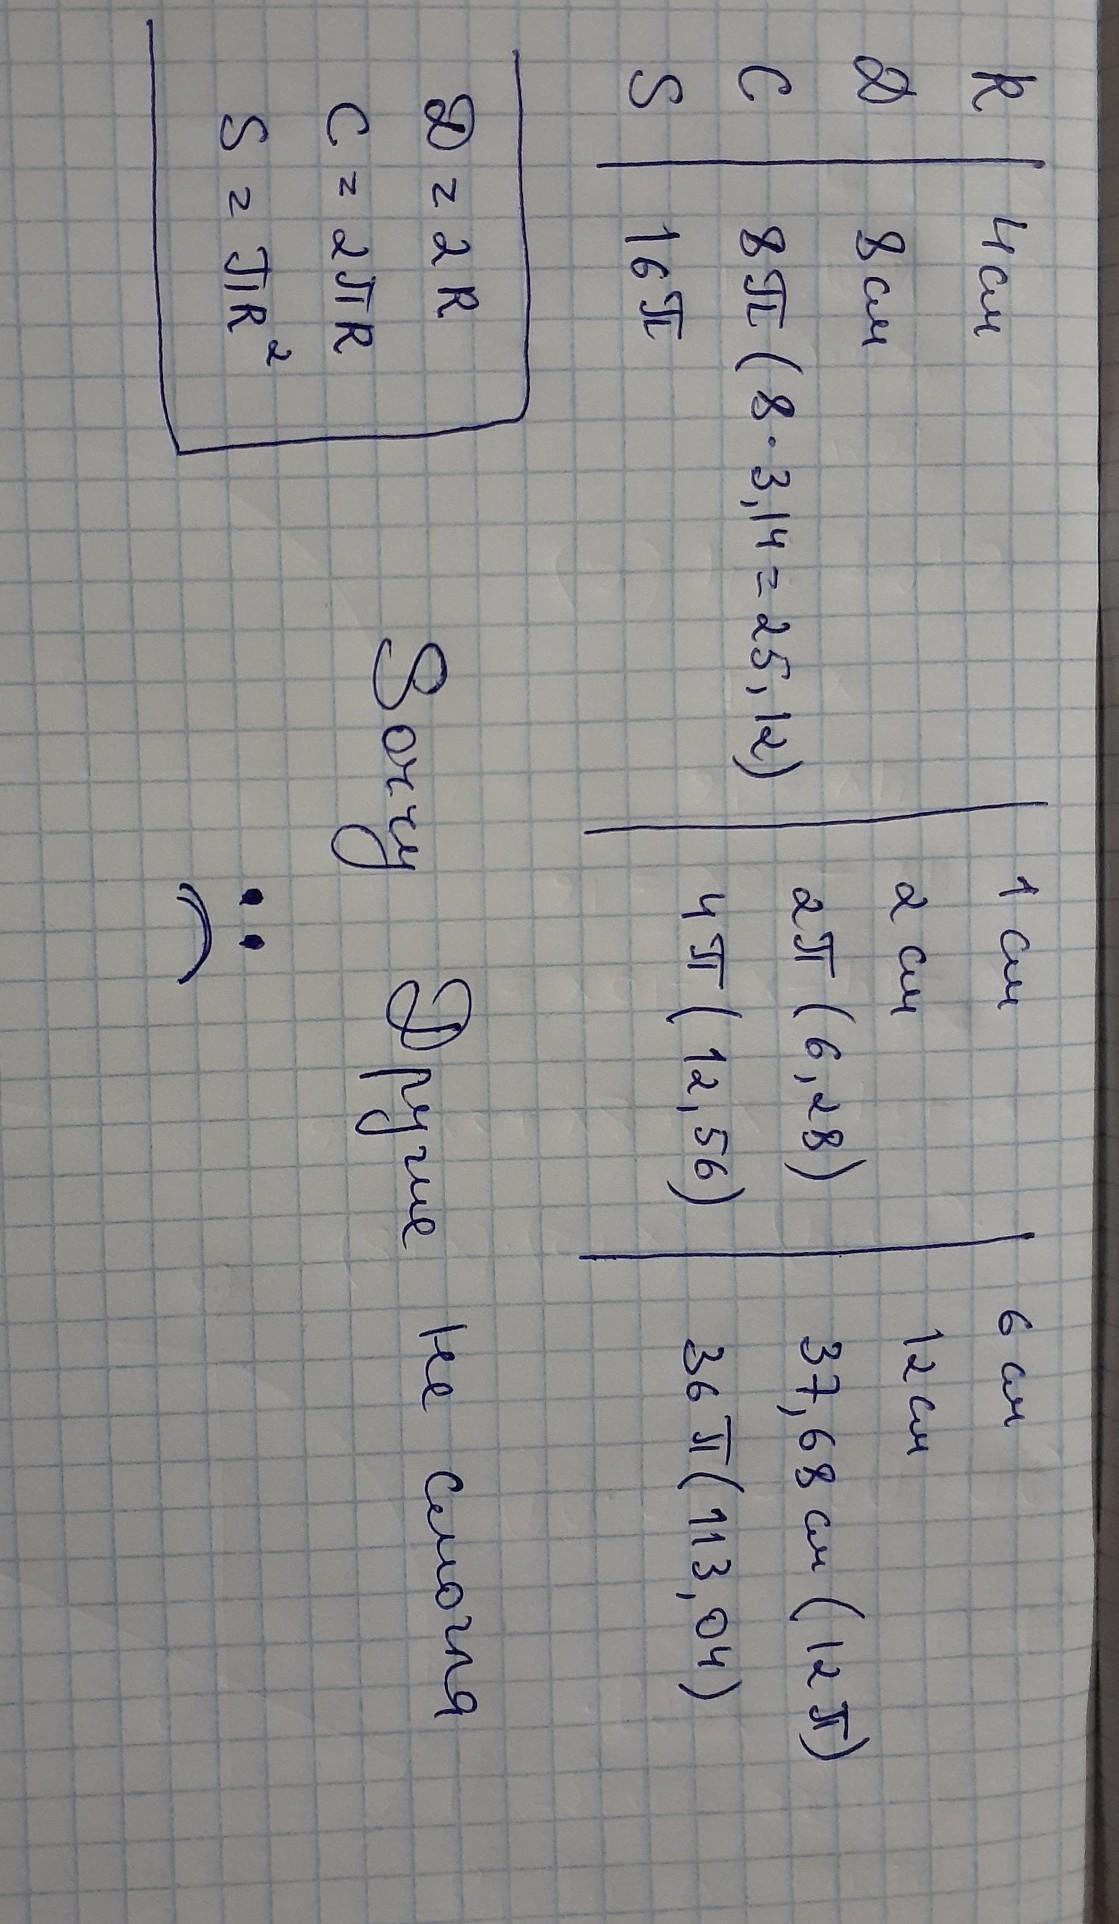 R 4 см 1 см 6 см
D 8 см 2 см 12 см
C 8π (8 · 3,14 = 25,12) 2π (6,28) 37,68 см (12π)
S 16π 4π (12,56) 36π (113,04)
D = 2R
C = 2πR
S = πR²
Другие не смогла
:(